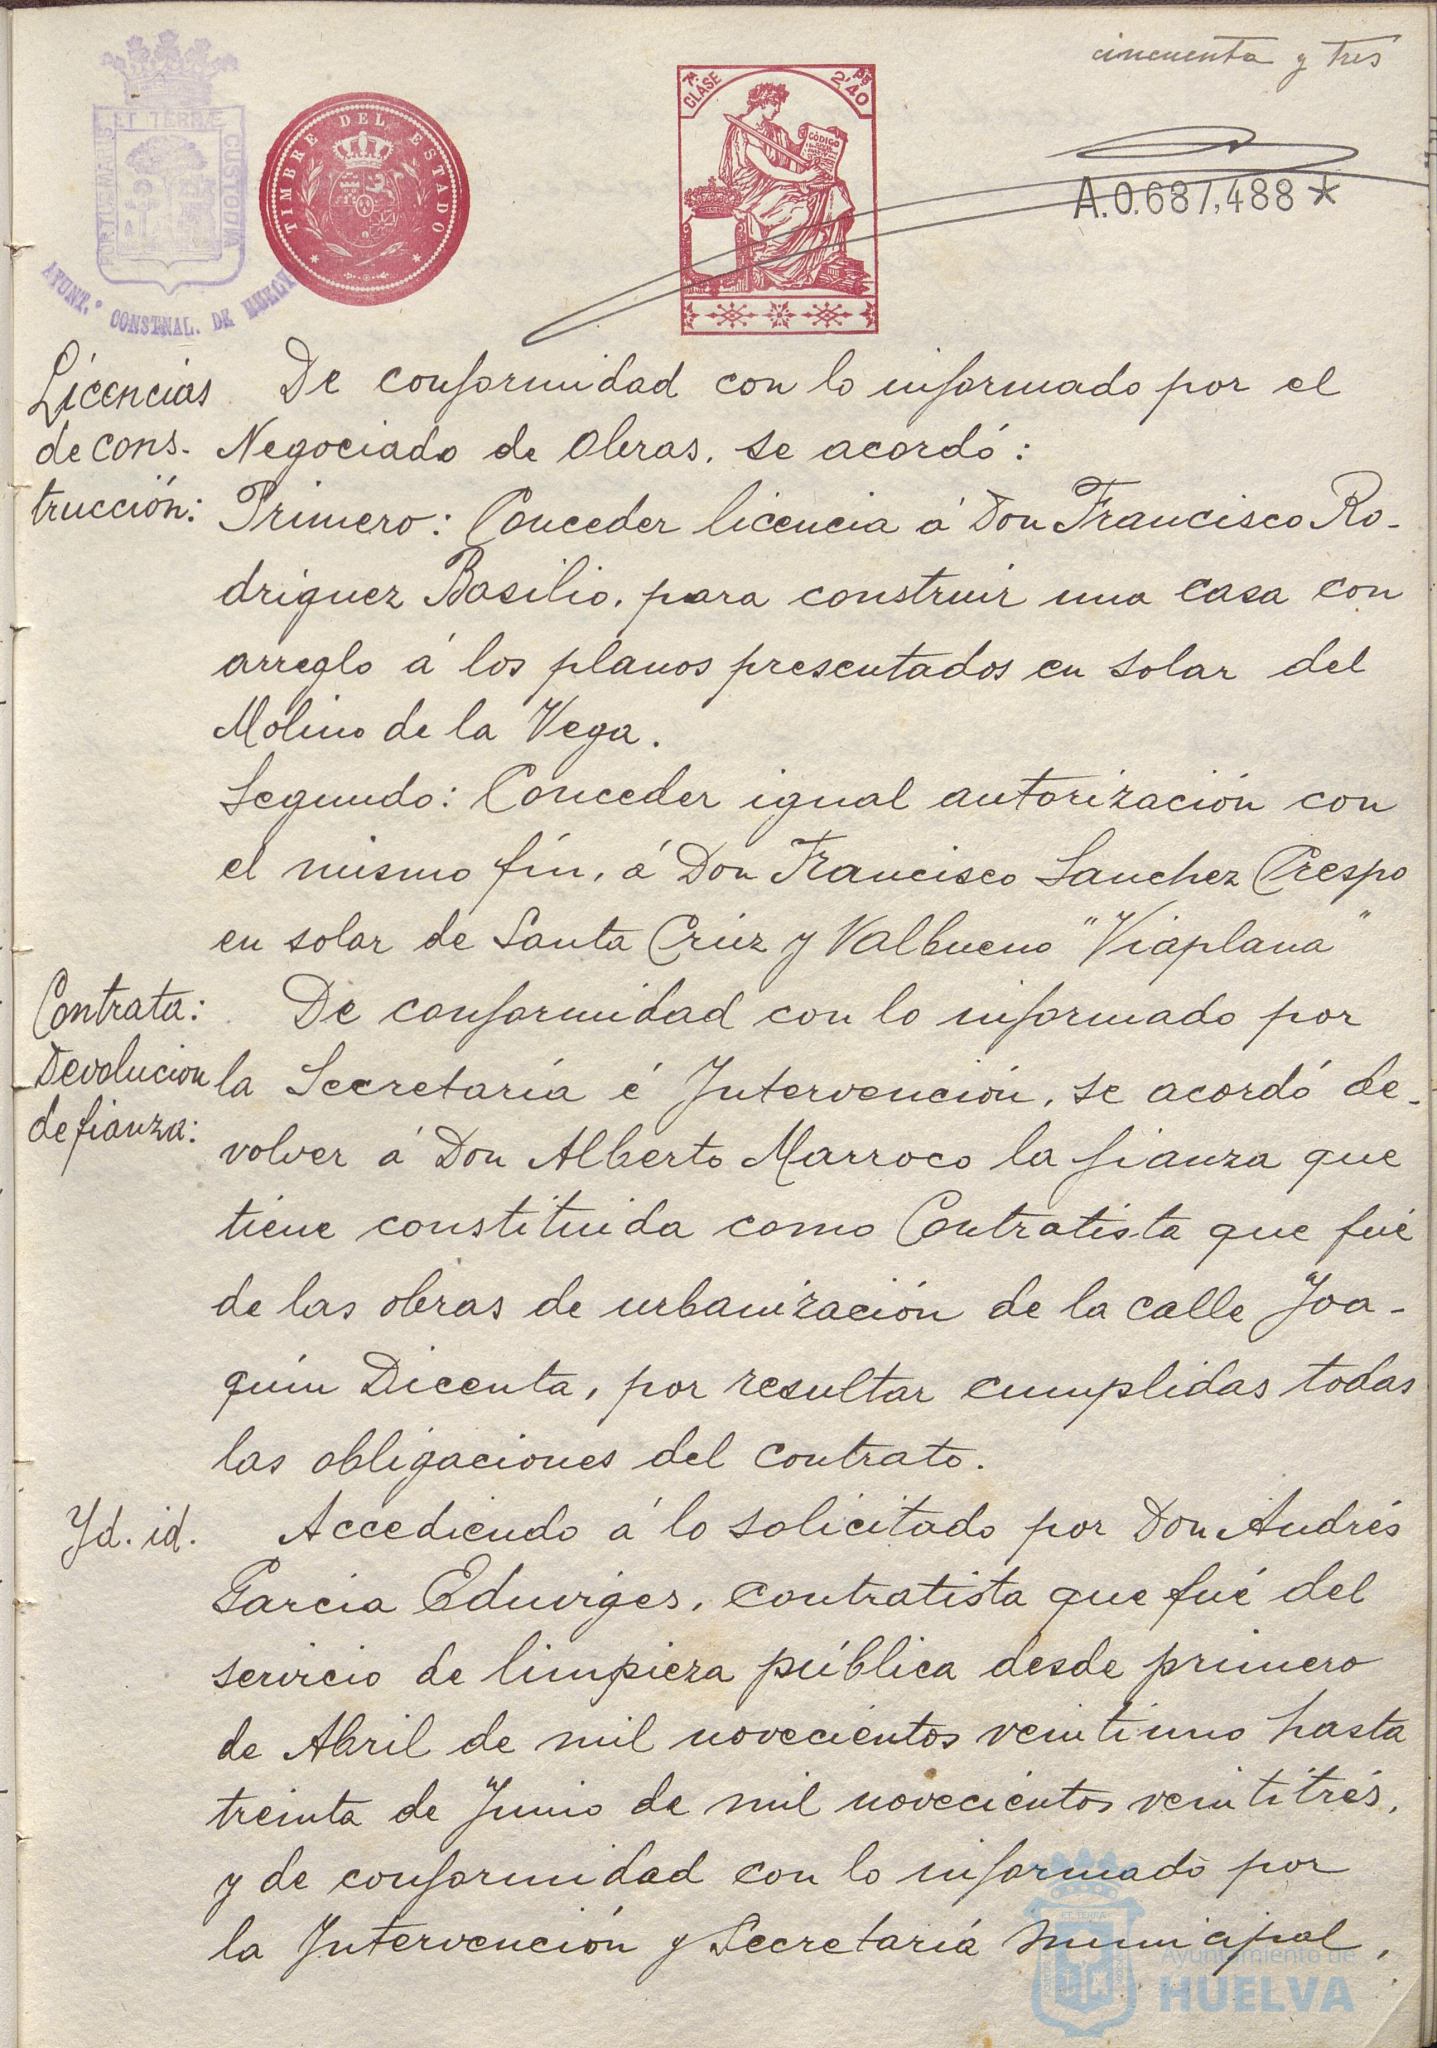 cincuenta y tres
PORTUS MARIS ET TERRÆ CUSTODIA
AYUNT.º CONSTNAL. DE HUELVA
TIMBRE DEL ESTADO
7ª CLASE
2'40 PS
CÓDIGO
A.0.687,488*
Licencias
de cons-
trucción:
De conformidad con lo informado por el
Negociado de Obras, se acordó:
Primero: Conceder licencia á Don Francisco Ro-
driguez Basilio, para construir una casa con
arreglo á los planos presentados en solar del
Molino de la Vega.
Segundo: Conceder igual autorización con
el mismo fín, á Don Francisco Sanchez Crespo
en solar de Santa Crúz y Valbueno "Viaplana"
Contrata:
Devolucion
de fianza:
De conformidad con lo informado por
la Secretaría é Intervención, se acordó de-
volver á Don Alberto Marroco la fianza que
tiene constituida como Contratista que fué
de las obras de urbanización de la calle Joa-
quín Dicenta, por resultar cumplidas todas
las obligaciones del contrato.
Yd. id.
Accediendo á lo solicitado por Don Andrés
Garcia Eduviges, contratista que fué del
servicio de limpieza pública desde primero
de Abril de mil novecientos veintiuno hasta
treinta de Junio de mil novecientos veintitrés,
y de conformidad con lo informado por
la Intervención y Secretaría municipal,
Ayuntamiento de
HUELVA